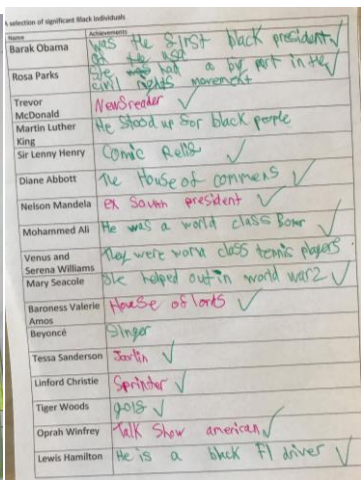 A selection of significant Black individuals
Name Achievements
Barak Obama was the first black president
of the usa
Rosa Parks She had a big part in the
civil rights movement
Trevor McDonald Newsreader
Martin Luther King He Stood up for black people
Sir Lenny Henry Comic
Diane Abbott The House of commens
Nelson Mandela ex South president
Mohammed Ali He was a world class Boxer
Venus and Serena Williams They were world class tennis players
Mary Seacole She helped out in world war2
Baroness Valerie Amos House of lords
Beyoncé Singer
Tessa Sanderson Javlin
Linford Christie Sprinter
Tiger Woods golf
Oprah Winfrey Talk Show american
Lewis Hamilton He is a black F1 driver